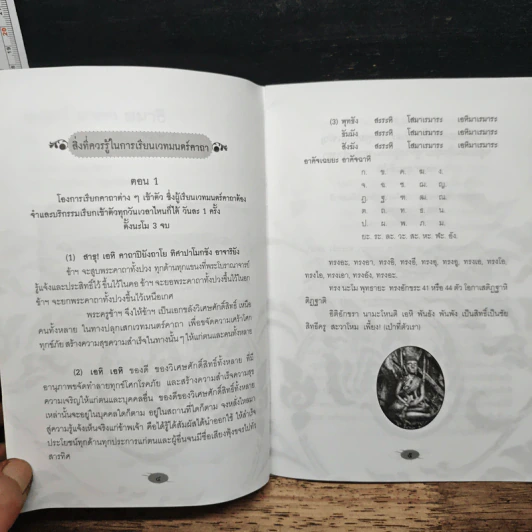 สิ่งที่ควรรู้ในการเรียนเวทมนตร์คาถา
ตอน 1
โองการเรียกคาถาต่าง ๆ เข้าตัว ซึ่งผู้เรียนเวทมนตร์คาถาต้อง
จำและบริกรรมเรียกเข้าตัวทุกวันเวลาไหนก็ได้ วันละ 1 ครั้ง
ตั้งนะโม 3 จบ
(1) สาธุ! เอหิ คาถาปิยังถาโย ทิศาปาโมกขัง อาจาริยัง
ข้าฯ จะสูบพระคาถาทั้งปวง ทุกด้านทุกแขนงที่พระโบราณาจารย์
รู้แจ้งและประสิทธิ์ไว้ ขึ้นไว้ในคอ ข้าฯ จะยอพระคาถาทั้งปวงขึ้นไว้ในอก
ข้าฯ จะยกพระคาถาทั้งปวงขึ้นไว้เหนือเกศ
พระครูข้าฯ จึงให้ข้าฯ เป็นเอกขลังวิเศษศักดิ์สิทธิ์ เหนือ
คนทั้งหลาย ในทางปลุกเสกเวทมนตร์คาถา เพื่อขจัดความเศร้าโศก
ทุกข์ภัย สร้างความสุขความสำเร็จในทางนั้นๆ ให้แก่ตนและคนทั้งหลาย
(2) เอหิ เอหิ ของดี ของวิเศษศักดิ์สิทธิ์ทั้งหลาย ที่มี
อานุภาพขจัดทำลายทุกข์โศกโรคภัย และสร้างความสำเร็จความสุข
ความเจริญให้แก่ตนและบุคคลอื่น ของดีของวิเศษศักดิ์สิทธิ์
เหล่านั้นจะอยู่ในบุคคลใดก็ตาม อยู่ในสถานที่ใดก็ตาม จงหลั่งไหลมา
สู่ความรู้แจ้งเห็นจริงแก่ข้าพเจ้า คือได้รู้ได้สัมผัสได้นำออกใช้ ให้สำเร็จ
ประโยชน์ทุกด้านทุกประการแก่ตนและผู้อื่นจนมีชื่อเสียงฟุ้งขจรไปทั่ว
สารทิศ
(3) พุทธัง สะระทิ โสมาเรมาระ เอหิมาเรมาระ
ธัมมัง สะระทิ โสมาเรมาระ เอหิมาเรมาระ
สังฆัง สะระทิ โสมาเรมาระ เอหิมาเรมาระ
อาคัจเฉยยะ อาคัจฉาหิ
ก. ข. ค. ฆ. ง.
จ. ฉ. ช. ฌ. ญ.
ฏ. ฐ. ฑ. ฒ. ณ.
ต. ถ. ท. ธ. น.
ป. ผ. พ. ภ. ม.
ยะ. ระ. ละ. วะ. สะ. หะ. ฬะ. อัง.
ทรงอะ, ทรงอา, ทรงอิ, ทรงอี, ทรงอุ, ทรงอู, ทรงเอ, ทรงโอ,
ทรงไอ, ทรงเอา, ทรงอัง, ทรงอะ.
ทรง นะโม พุทธายะ ทรงอักขระ 41 หรือ 44 ตัว
อิติอักขรา นามะโหนติ เอหิ พันธัง พันพัง เป็นสิทธิ์เป็นชัย
สิทธิครู สะวาโหม เพี้ยง! (เป่าที่ตัวเรา)